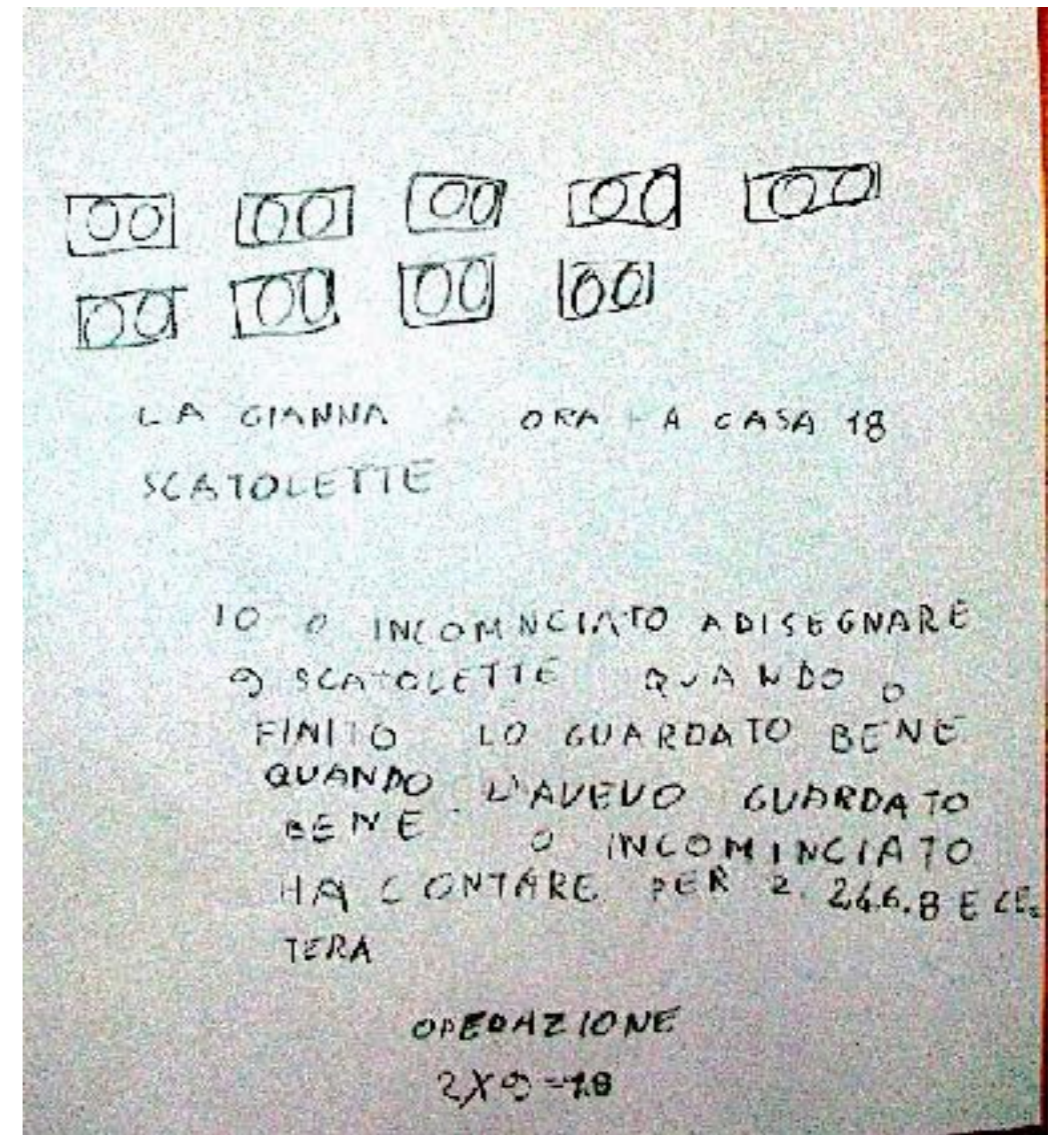 LA GIANNA A ORA A CASA 18
SCATOLETTE
IO O INCOMNCIATO ADISEGNARE
9 SCATOLETTE QUANDO O
FINITO LO GUARDATO BENE
QUANDO L'AVEVO GUARDATO
BENE O INCOMINCIATO
HA CONTARE PER 2. 2.4.6.8 E CE_
TERA
OPERAZIONE
2X9=18